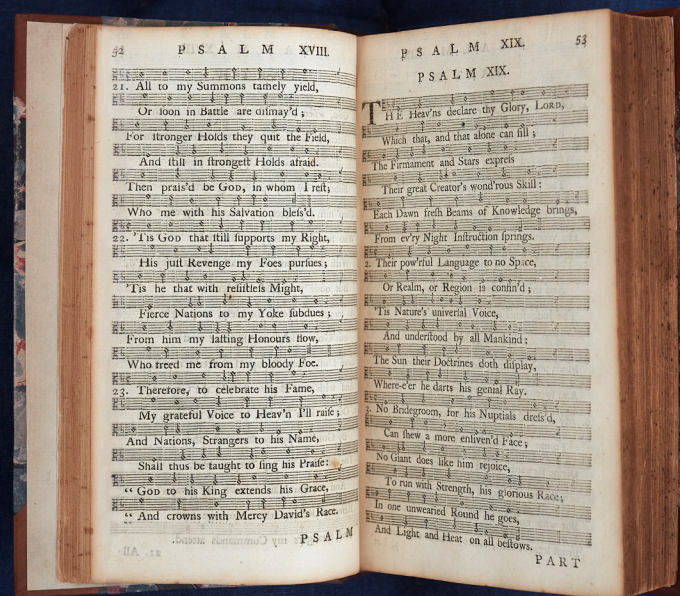 52 PSALM XVIII.
21. All to my Summons tamely yield,
Or ſoon in Battle are diſmay'd;
For ſtronger Holds they quit the Field,
And ſtill in ſtrongeſt Holds afraid.
Then prais'd be GOD, in whom I reſt;
Who me with his Salvation bleſs'd.
22. 'Tis GOD that ſtill ſupports my Right,
His juſt Revenge my Foes purſues;
'Tis he that with reſiſtleſs Might,
Fierce Nations to my Yoke ſubdues;
From him my laſting Honours flow,
Who freed me from my bloody Foe.
23. Therefore, to celebrate his Fame,
My grateful Voice to Heav'n I'll raiſe;
And Nations, Strangers to his Name,
Shall thus be taught to ſing his Praiſe:
“ GOD to his King extends his Grace,
“ And crowns with Mercy David's Race.
PSALM
PSALM XIX. 53
PSALM XIX.
THE Heav'ns declare thy Glory, LORD,
Which that, and that alone can fill;
The Firmament and Stars expreſs
Their great Creator's wond'rous Skill:
Each Dawn freſh Beams of Knowledge brings,
From ev'ry Night Inſtruction ſprings.
Their pow'rful Language to no Space,
Or Realm, or Region is confin'd;
'Tis Nature's univerſal Voice,
And underſtood by all Mankind:
The Sun their Doctrines doth diſplay,
Where-e'er he darts his genial Ray.
3. No Bridegroom, for his Nuptials dreſs'd,
Can ſhew a more enliven'd Face;
No Giant does like him rejoice,
To run with Strength, his glorious Race;
In one unwearied Round he goes,
And Light and Heat on all beſtows.
PART